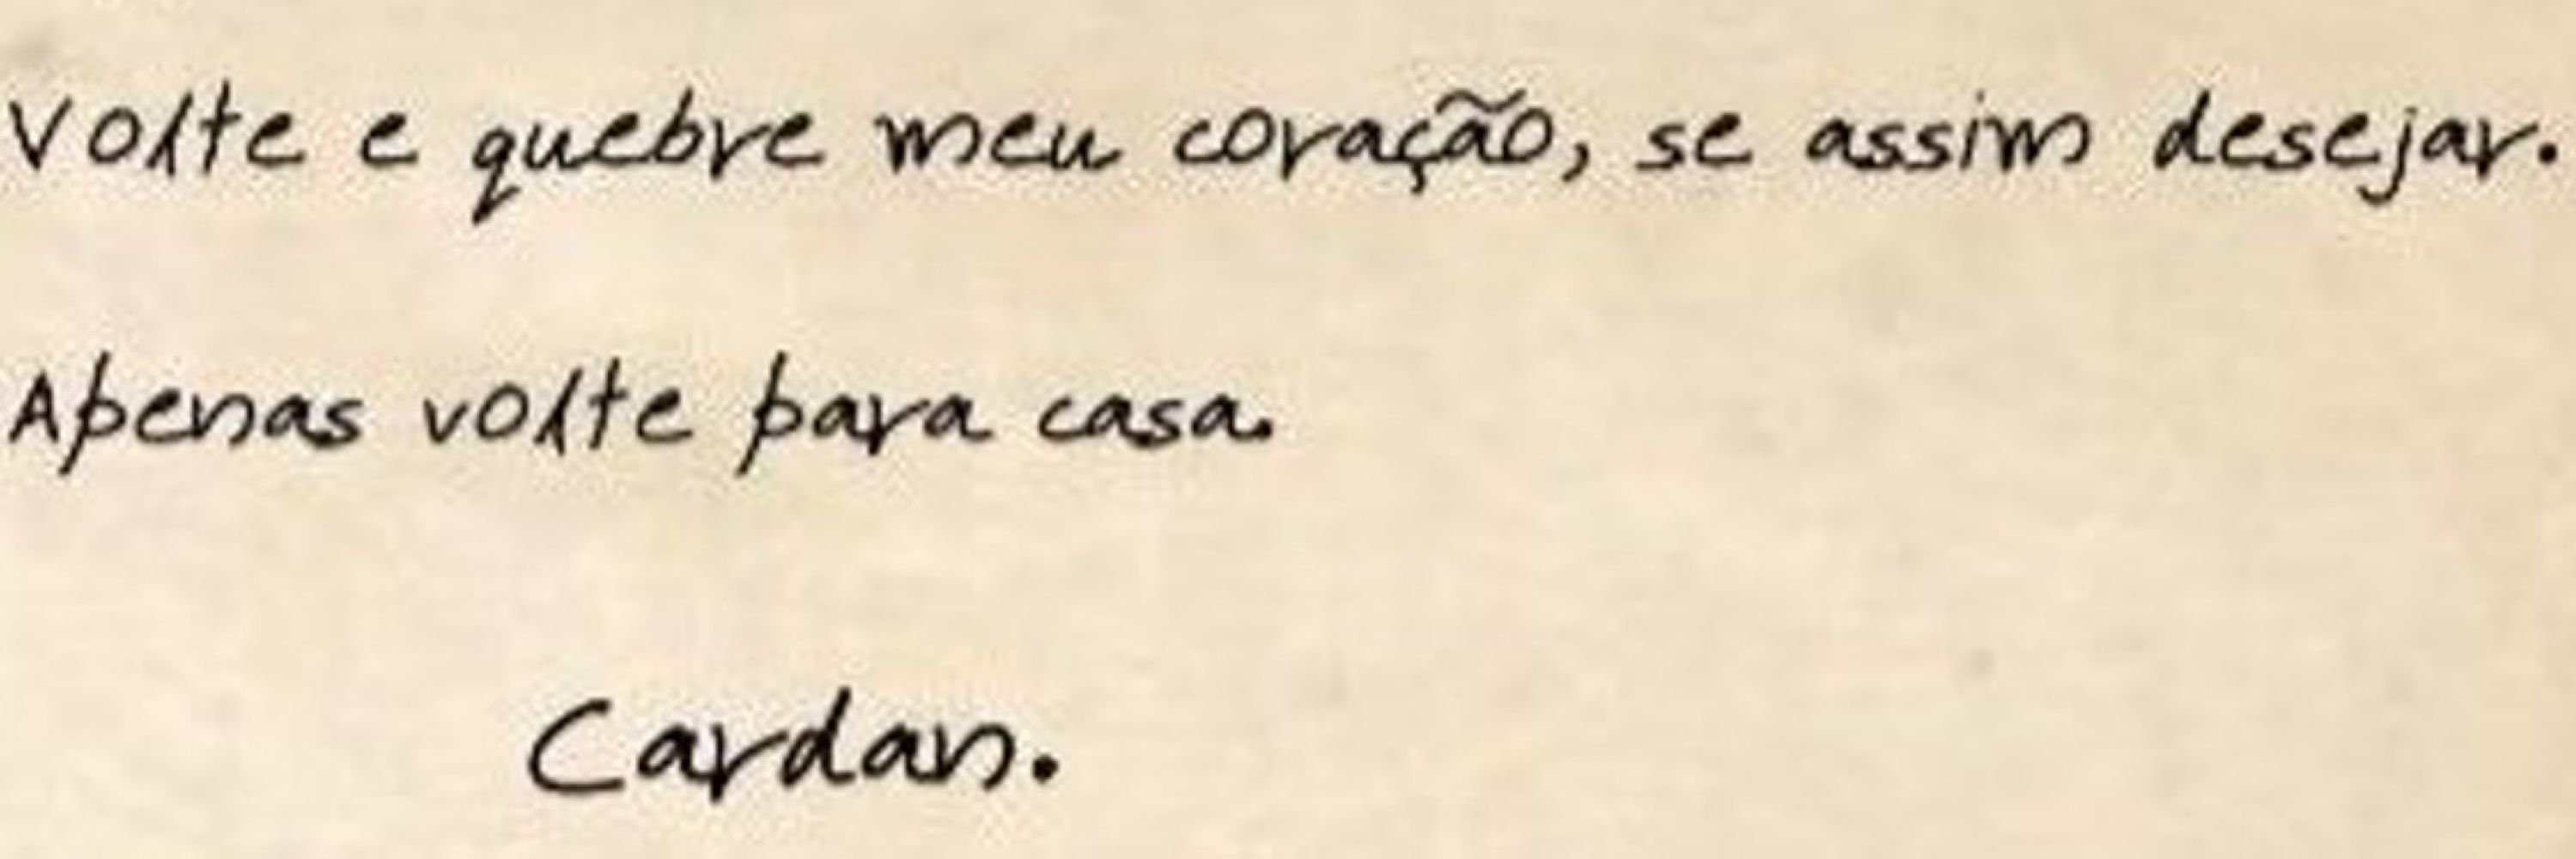 Volte e quebre meu coração, se assim desejar.
Apenas volte para casa.
Cardan.